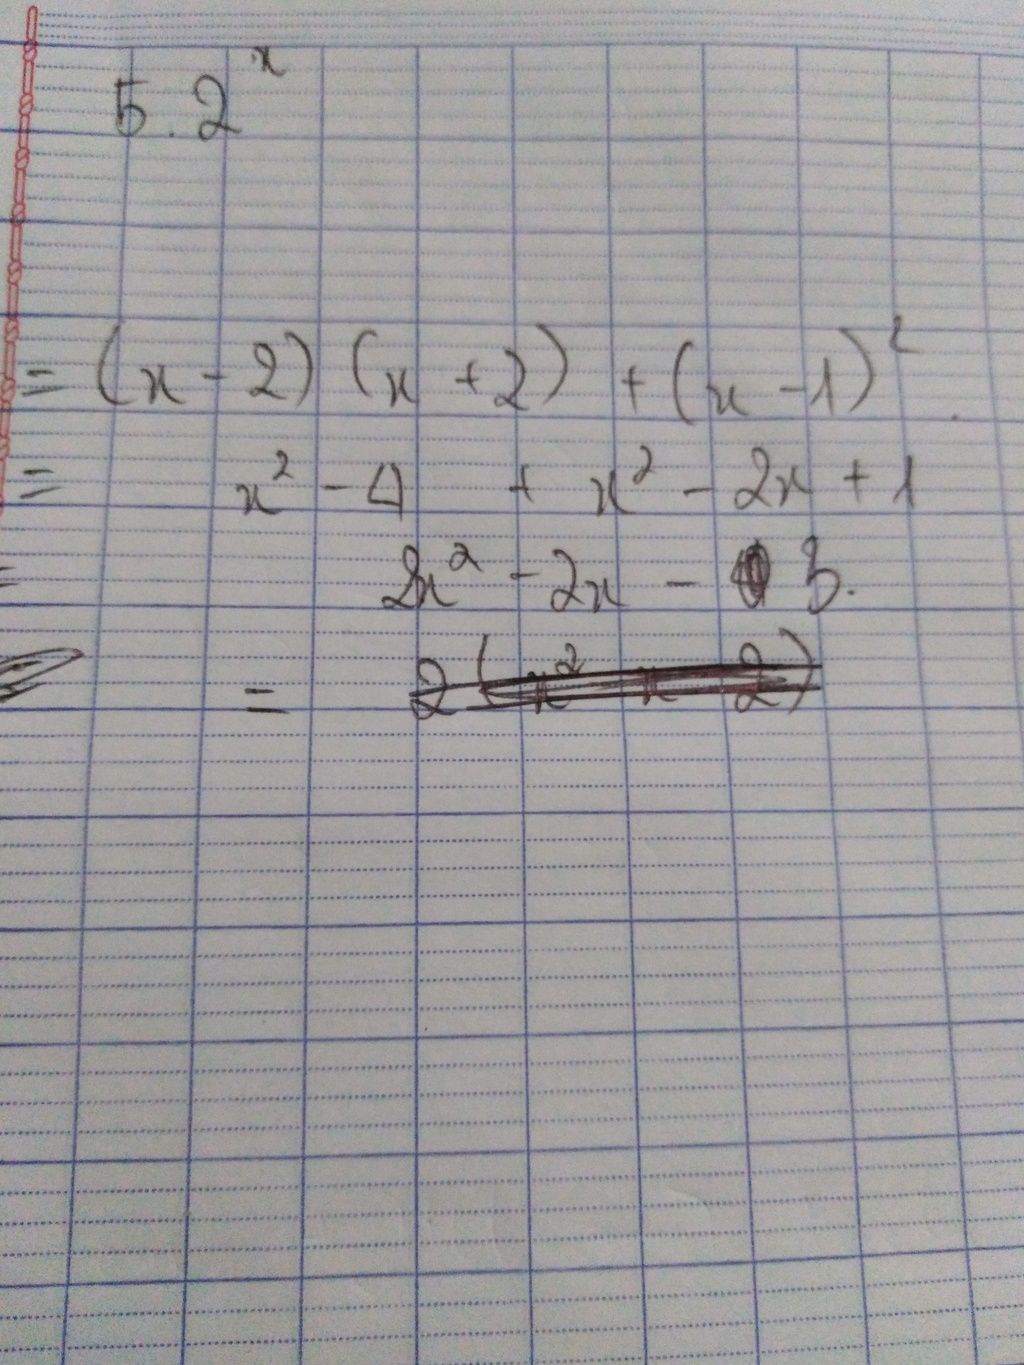 5.2ˣ
= (x - 2) (x + 2) + (x - 1)² .
= x² - 4 + x² - 2x + 1
= 2x² - 2x - 3.
= 2 (x² x 2)